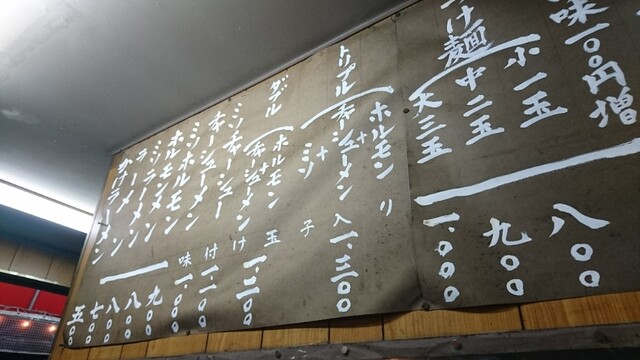 味一〇〇円増
つけ麺
小一玉 八〇〇
中二玉 九〇〇
大三玉 一、〇〇〇
トリプル
ホルモン
+
チャーシューメン
+
ミソ
一、三〇〇
ダブル
ホルモン
+
チャーシューメン
一、二〇〇
ミソチャーシュー 一、一〇〇
チャーシューメン 一、〇〇〇
ミソホルモン 九〇〇
ホルモンメン 八〇〇
ミソラーメン 八〇〇
ラーメン 七〇〇
かけラーメン 五〇〇
味付け玉子入り